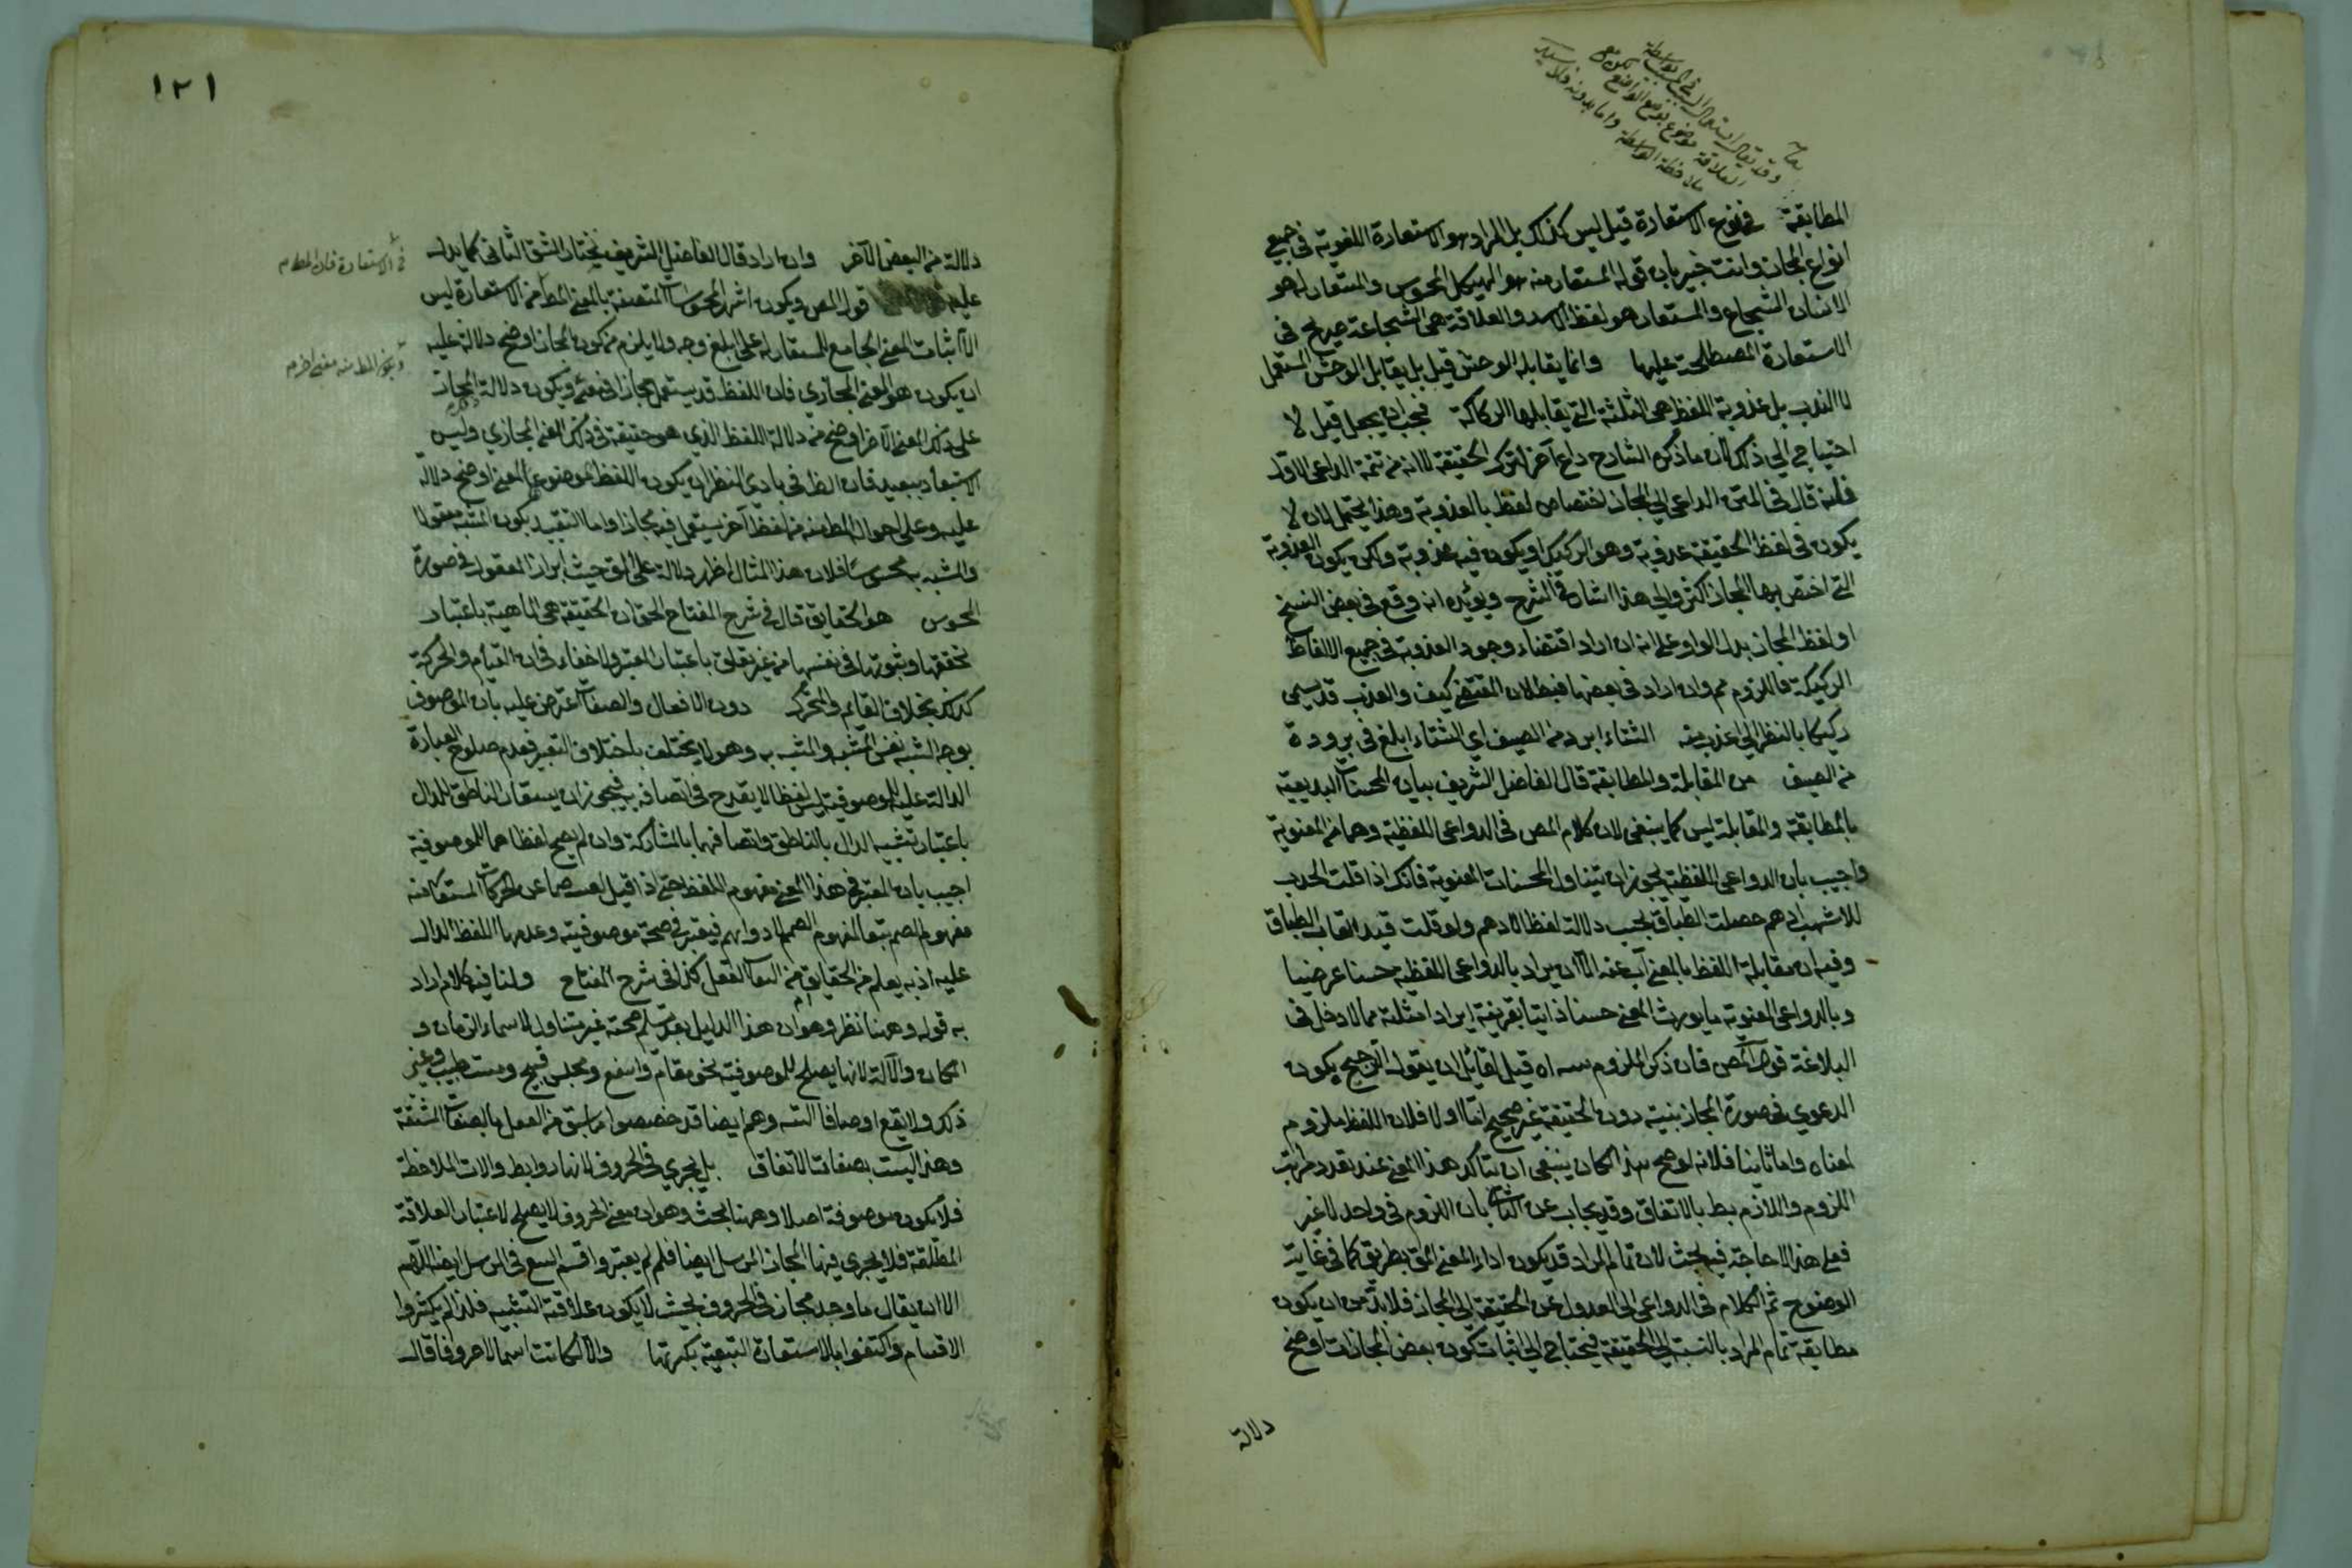 المطابقة في نوع الاستعارة قيل ليس كذلك بل المراد هو الاستعارة اللغوية في جميع
انواع المجاز وانت خبير بان قوله المستعار منه هو الهيكل المحسوس والمستعار له هو
الانسان الشجاع والمستعار هو لفظ الاسد والعلاقة هي الشجاعة صريح في
الاستعارة المصطلحة عليها وانما يقابله الوحشي قيل بل يقابل الوحشي المستعمل
لا العذب بل عذوبة اللفظ هي الثلثة التي يقابلها الركاكة فيجب ان يجعل قيل لا
احتياج الي ذلك لان ما ذكره الشارح داع آخر لترك الحقيقة لا انه من تتمة الداعي الاول
فانه قال في المتن الداعي الي المجاز اختصاص لفظه بالعذوبة وهذا يحتمل لان لا
يكون في لفظ الحقيقة عذوبة وهو الركيك او يكون فيه عذوبة ولكن يكون العذوبة
التي اختص بها المجاز اكثر والي هذا اشار في الشرح ويؤيده انه وقع في بعض النسخ
او لفظ المجاز بدل الواو علي انه ان اراد اقتضاء وجود العذوبة في جميع الالفاظ
الركيكة فاللزوم مم وان اراد في بعضها فبطلان المقتضي كيف والعذب قد يسمي
ركيكا بالنظر الي اعذب منه الشتاء ابرد من الصيف اي الشتاء ابلغ في برودة
من الصيف من المقابلة والمطابقة قال الفاضل الشريف بيان المحسنات البديعية
بالمطابقة والمقابلة ليس كما ينبغي لان كلام المص في الدواعي اللفظية وهما من المعنوية
واجيب بان الدواعي اللفظية يجوز ان يتناول المحسنات المعنوية فانك اذا قلت الحدب
للاشهب ادهم حصلت الطباق بحسب دلالة لفظ الادهم ولو قلت قيد الفات الطباق
وفيه ان مقابلة اللفظ بالمعني آب عنه الا ان يراد بالدواعي اللفظية حسنا عرضيا
وبالدواعي المعنوية ما يورث المعني حسنا ذاتيا بقرينة ايراد امثلة مما لا دخل في
البلاغة قول المص فان ذكر الملزوم اه قيل لقائل ان يقول الترجيح يكون
الدعوي في صورة المجاز بنية دون الحقيقة غير صحيح اما اولا فلان اللفظ ملزوم
لمعناه واما ثانيا فلانه لو صح هذا لكان ينبغي ان يتاكد هذا المعني عند تعدد مراتب
اللزوم واللازم بط بالاتفاق وقد يجاب عن الثاني بان اللزوم في واحد لا غير
فعلي هذا لا حاجة فيه بحث لان تمام المراد قد يكون اداء المعني بطريق كما في غاية
الوضوح ثم الكلام في الدواعي الي العدول عن الحقيقة الي المجاز فلا بد من ان يكون
مطابقة تمام المراد بالنسبة الي الحقيقة فيحتاج الي اثبات كون بعض المجازات اوضح
دلالة
١٢١
دلالة من البعض الآخر وان اراد قال الفاضل الشريف نختار الشق الثاني كما يدل
عليه قول المص ويكون اشهر المحسوسات المتصفة بالمعني المط من الاستعارة ليس
الا اثبات المعني الجامع للمستعار له علي ابلغ وجه ولا يلزم من كون المجاز اوضح دلالة عليه
ان يكون هو المعني المجازي فان اللفظ قد يستعمل مجازا في معني ويكون دلالة المجاز
علي ذلك المعني الآخر اوضح من دلالة اللفظ الذي هو حقيقة في ذلك المعني المجازي وليس
الاستبعاد ببعيد فان الظ في بادي النظر ان يكون اللفظ الموضوع للمعني اوضح دلالة
عليه وعلي احواله المط منه من لفظ آخر يستعمل فيه مجازا واما التقييد بكون المشبه معقولا
والمشبه به محسوسا فلان هذا المثال اظهر دلالة علي المق حيث ابراز المعقول في صورة
المحسوس هو الحقايق قال في شرح المفتاح الحق ان الحقيقة هي الماهية باعتبار
تحققها وثبوتها في نفسها من غير تعلق باعتبار المعتبر ولا خفاء في ان القيام والحركة
كذلك بخلاف القائم والمتحرك دون الافعال والصفات اعترض عليه بان الموصوف
بوجه الشبه نفس المشبه والمشبه به وهو لا يختلف باختلاف التعبير فعدم صلوح العبارة
الدالة عليه للموصوفية ليس لفظا لا يقدح في اتصافه به فيجوز ان يستعار الناطق للدال
باعتبار تشبيه الدال بالناطق واتصافهما بالمشاركة وان لم يصح لفظاهما للموصوفية
اجيب بان المعتبر في هذا المعني مفهوم اللفظ حتي اذا قيل
مفهوم الصم تبعا لمفهوم الصمم فيعتبر في صحة موصوفيته وعدمها اللفظ الدال
عليه اذ به يعلم من الحقايق ام من الفعل كذا في شرح المفتاح ولنا فيه كلام اراد
به قوله وههنا نظر وهو ان هذا الدليل بعد تسليم صحته غير متناول لاسماء الزمان و
المكان والآلة لانها يصلح للموصوفية نحو مقام واسع ومجلس فسيح ومنبت طيب وغير
ذلك ولا يقع اوصافا البتة وهم ايضا قد خصصوا ما يشتق من الفعل بالصفات المشتقة
وهذا ليست بصفات بالاتفاق بل يجري في الحروف لانها روابط وآلات الملاحظة
فلا يكون موصوفة اصلا وههنا بحث وهو ان معني الحروف لا يصلح لاعتبار العلاقة
المطلقة فلا يجري فيها المجاز المرسل ايضا فلم لم يعتبروا قسم التبع في المرسل ايضا اللهم
الا ان يقال ما وجد مجاز في الحروف بحيث لا يكون علاقته التشبيه فلذا لم يكثروا
الاقسام واكتفوا بالاستعارة التبعية بكثرتها والا لكانت اسما لا حروفا قال
في الاستعارة فان المط